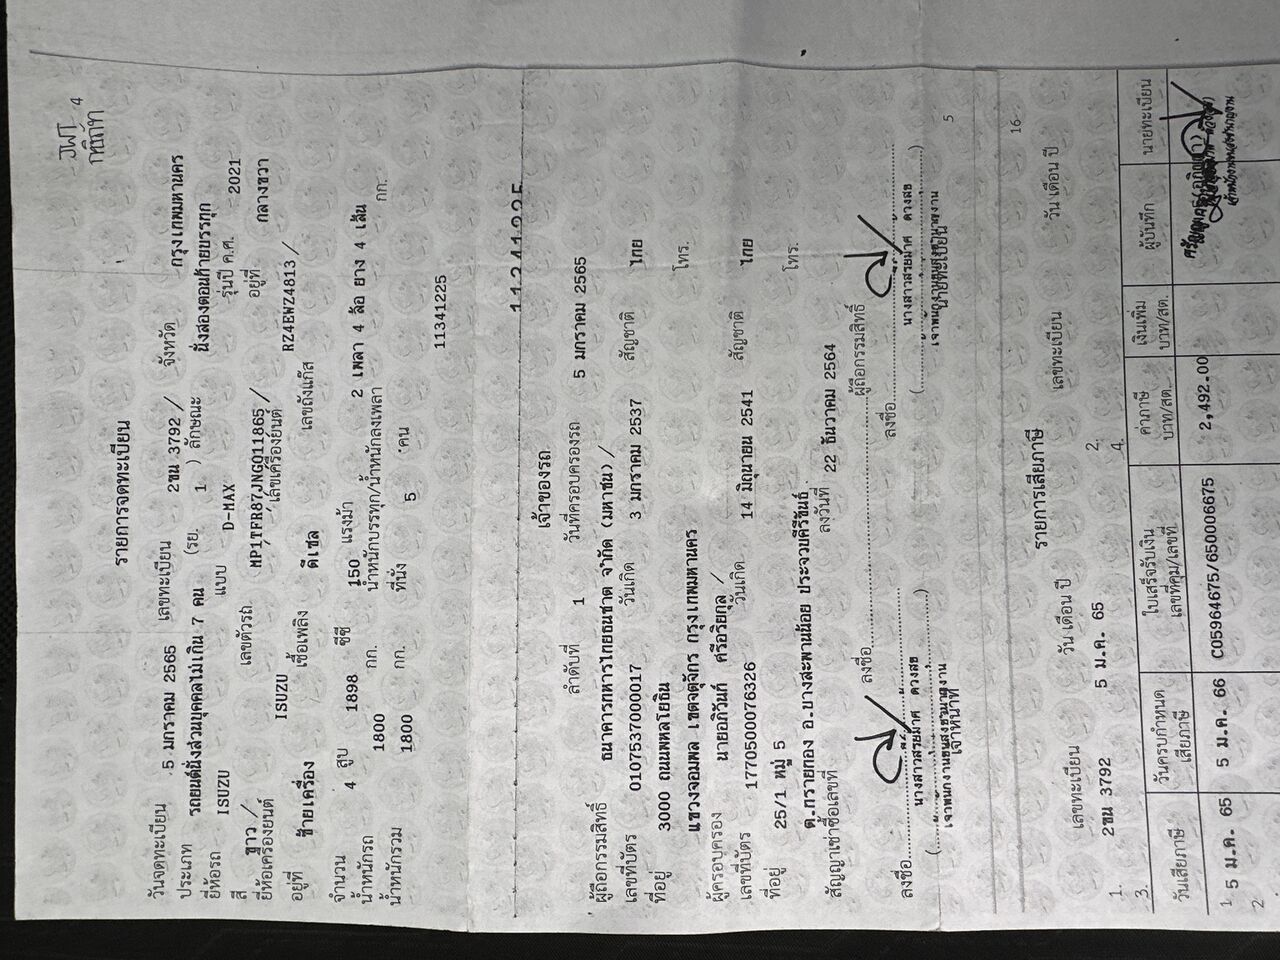 JWT 4
รายการจดทะเบียน
วันจดทะเบียน 5 มกราคม 2565 เลขทะเบียน 2ขน 3792 / จังหวัด กรุงเทพมหานคร
ประเภท รถยนต์นั่งส่วนบุคคลไม่เกิน 7 คน (รย. 1 ) ลักษณะ นั่งสองตอนท้ายบรรทุก
ยี่ห้อรถ ISUZU แบบ D-MAX รุ่นปี ค.ศ. 2021
สี ขาว / เลขตัวรถ MP1TFR87JNG011865 / อยู่ที่ กลางขวา
ยี่ห้อเครื่องยนต์ ISUZU เลขเครื่องยนต์ RZ4EWZ4813 /
อยู่ที่ ซ้ายเครื่อง เชื้อเพลิง ดีเซล เลขถังแก๊ส
จำนวน 4 สูบ 1898 ซีซี 150 แรงม้า 2 เพลา 4 ล้อ ยาง 4 เส้น
น้ำหนักรถ 1800 กก. น้ำหนักบรรทุก/น้ำหนักลงเพลา กก.
น้ำหนักรวม 1800 กก. ที่นั่ง 5 คน
11341225
11341225
เจ้าของรถ
ลำดับที่ 1 วันที่ครอบครองรถ 5 มกราคม 2565
ผู้ถือกรรมสิทธิ์ ธนาคารทหารไทยธนชาต จำกัด (มหาชน) /
เลขที่บัตร 0107537000017 วันเกิด 3 มกราคม 2537 สัญชาติ ไทย
ที่อยู่ 3000 ถนนพหลโยธิน โทร.
แขวงจอมพล เขตจตุจักร กรุงเทพมหานคร
ผู้ครอบครอง นายอภิวันท์ ศรีอริยกุล /
เลขที่บัตร 1770500076326 วันเกิด 14 มิถุนายน 2541 สัญชาติ ไทย
ที่อยู่ 25/1 หมู่ 5 โทร.
ต.ทรายทอง อ.บางสะพานน้อย ประจวบคีรีขันธ์
สัญญาเช่าซื้อเลขที่ ลงวันที่ 22 ธันวาคม 2564
ลงชื่อ ผู้ถือกรรมสิทธิ์
ลงชื่อ ลงชื่อ
นางสาวสวยมาศ ดวงสอ นางสาวสวยมาศ ดวงสอ
เจ้าพนักงานขนส่งชำนาญงาน เจ้าพนักงานขนส่งชำนาญงาน
เจ้าหน้าที่ นายทะเบียน
5
16
รายการเสียภาษี
เลขทะเบียน วัน เดือน ปี เลขทะเบียน วัน เดือน ปี
1. 2ขน 3792 5 ม.ค. 65 2.
3. 4.
วันเสียภาษี วันครบกำหนดเสียภาษี ใบเสร็จรับเงิน เลขที่คุม/เลขที่ ค่าภาษี บาท/สต. เงินเพิ่ม บาท/สต. ผู้บันทึก นายทะเบียน
1 5 ม.ค. 65 5 ม.ค. 66 C05964675/650006675 2,492.00
2